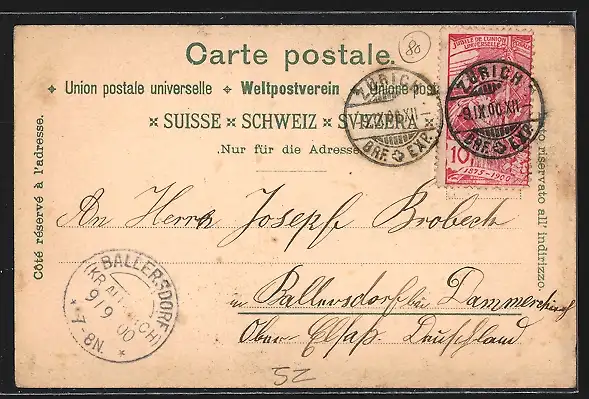 Carte postale.
80
Union postale universelle ✦ Weltpostverein ✦ Unione post
× SUISSE × SCHWEIZ × SVIZZERA ×
Nur für die Adresse
Côté réservé à l'adresse.
o riservato all' indirizzo.
JUBILÉ DE L'UNION
UNIVERSELLE
10
1875-1900
ZÜRICH
9.IX.00.XII
BRF. EXP.
ZÜRICH
9.IX.00.XII
BRF. EXP.
An Herrn Joseph Brobech
in Ballersdorf bei Dammerkirch
Ober-Elsaß. Deutschland
BALLERSDORF
9/9 00
* 7-8N. *
52